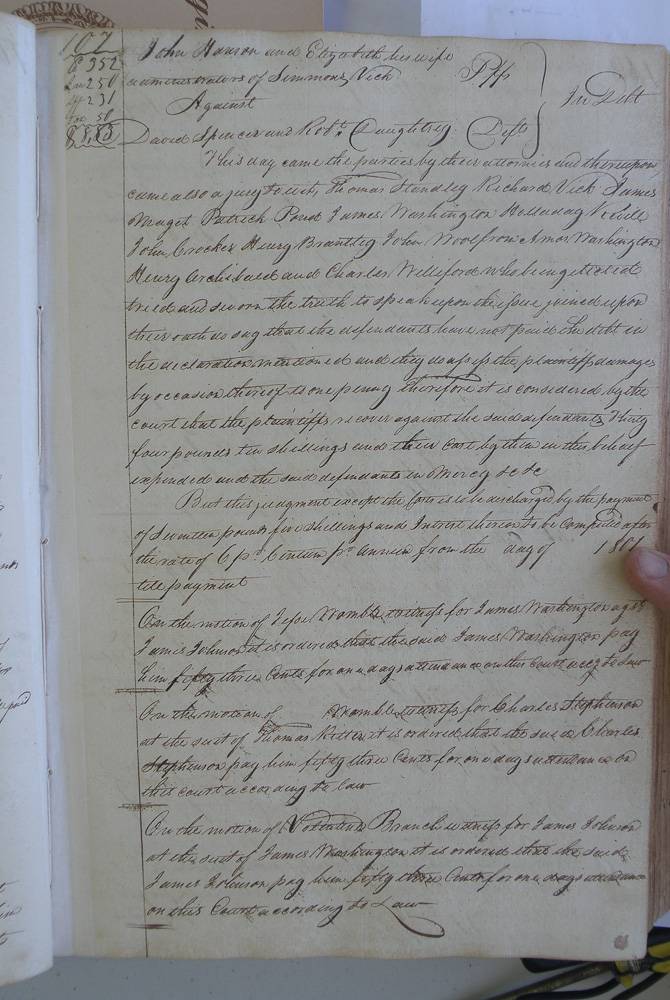 107
C 352
Law 250
231
50
8.83
John Hanson and Elizabeth his wife
administrators of Simmons Vick Plfs
Against In Debt
David Spencer and Robt. Daughtrey Defts
This day came the parties by their attornies and thereupon
came also a jury to wit, Thomas Standley Richard Vick James
Maget Patrick Pond James Washington Holladay
John Crocker Henry Brantley John Woolfrow Amos Washington
Henry Archibald and Charles Williford who being elected
tried and sworn the truth to speak upon the issue joined upon
their oath do say that the defendants have not paid the debt in
the declaration mentioned and they do assess the plaintiffs damages
by occasion thereof to one penny therefore it is considered by the
court that the plaintiffs recover against the said defendants Thirty
four pounds ten shillings and their cost by them in this behalf
expended and the said defendants in Mercy &c &c
But this judgment except the Costs is to be discharged by the payment
of Seventeen pounds five shillings and Interest thereon to be Computed after
the rate of 6 pr. Centum pr annum from the day of 1801
till payment
On the motion of Womble witness for James Washington agst
James Johnson it is ordered that the said James Washington pay
him fifty three Cents for one days attendance on this Court accg to Law
On the motion of Womble witness for Charles Stephenson
at the suit of Thomas it is ordered that the said Charles
Stephenson pay him fifty three Cents for one days attendance on
this court according to law
On the motion of Branch witness for James Johnson
at the suit of James Washington it is ordered that the said
James Johnson pay him fifty three Cents for one days attendance
on this Court according to Law